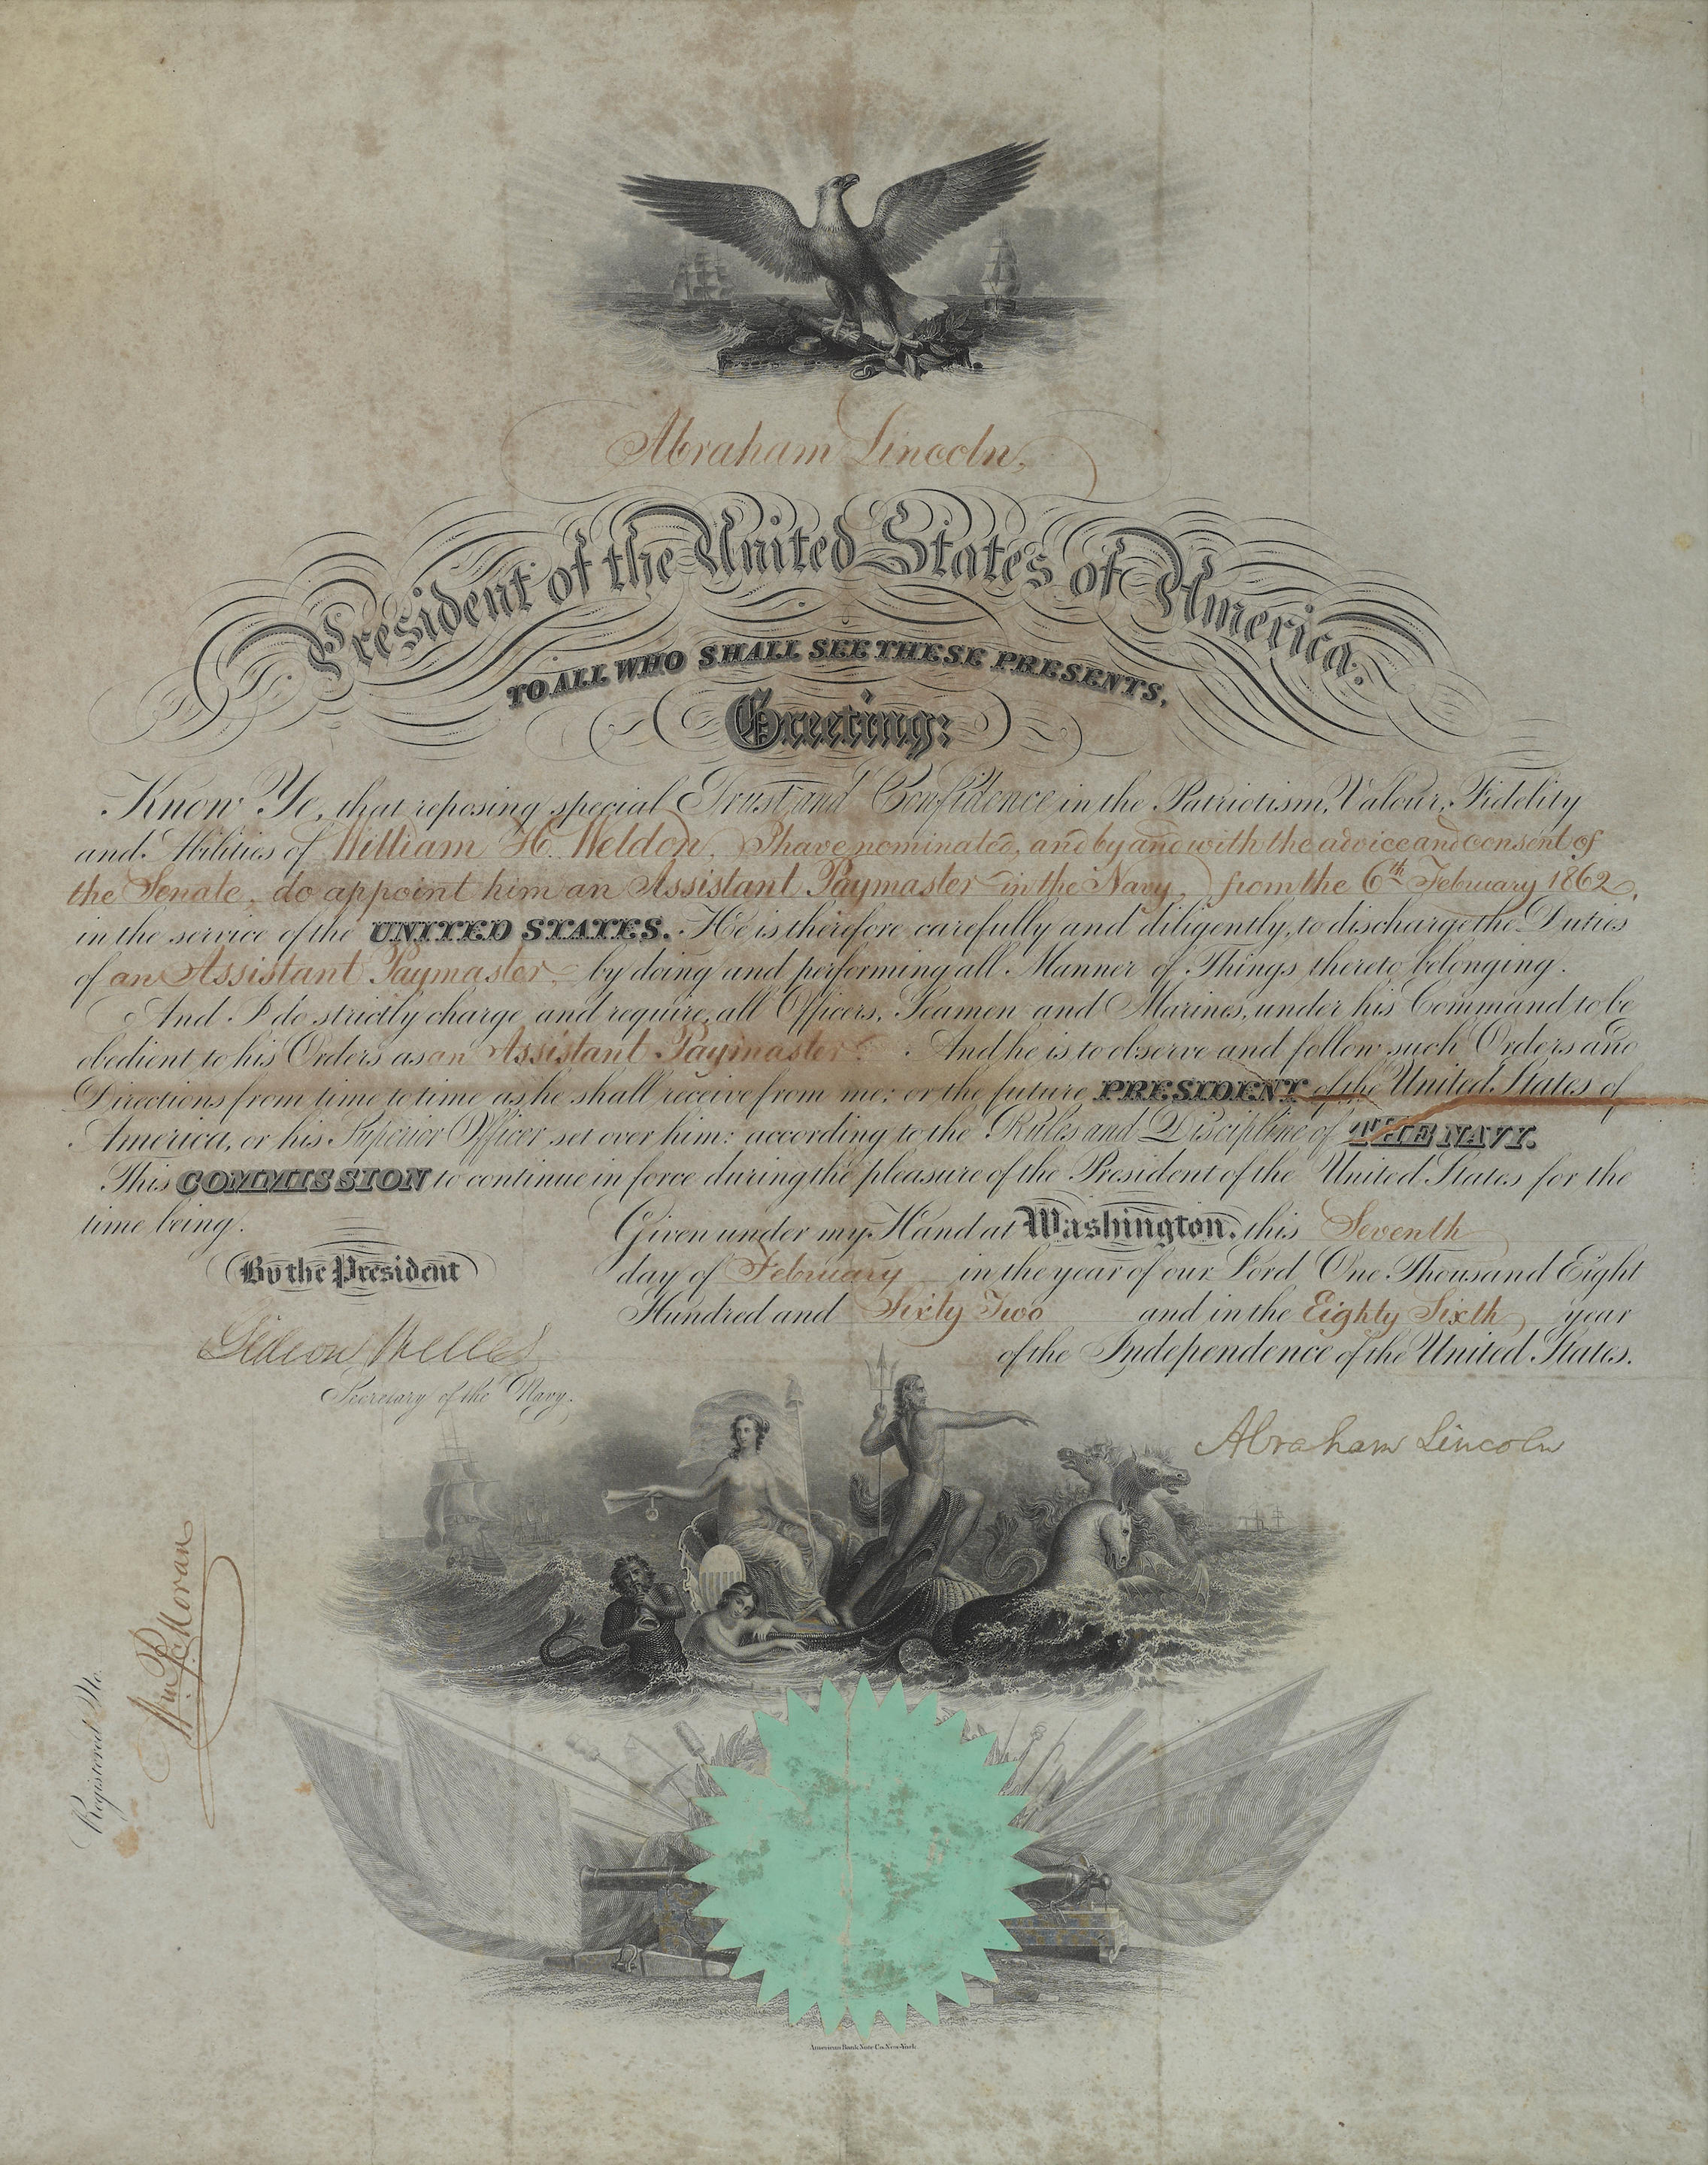 Abraham Lincoln,
President of the United States of America.
TO ALL WHO SHALL SEE THESE PRESENTS,
Greeting:
Know Ye, that reposing special Trust and Confidence in the Patriotism, Valour, Fidelity
and Abilities of William H. Weldon, I have nominated, and by and with the advice and consent of
the Senate, do appoint him an Assistant Paymaster in the Navy, from the 6th February 1862,
in the service of the UNITED STATES. He is therefore carefully and diligently, to discharge the Duties
of an Assistant Paymaster, by doing and performing all Manner of Things thereto belonging.
And I do strictly charge and require, all Officers, Seamen and Marines, under his Command to be
obedient to his Orders as an Assistant Paymaster. And he is to observe and follow such Orders and
Directions from time to time as he shall receive from me; or the future PRESIDENT of the United States of
America, or his Superior Officer set over him: according to the Rules and Discipline of THE NAVY.
This COMMISSION to continue in force during the pleasure of the President of the United States for the
time being.
Given under my Hand at Washington, this Seventh
day of February in the year of our Lord One Thousand Eight
Hundred and Sixty Two and in the Eighty Sixth year
of the Independence of the United States.
By the President
Gideon Welles
Secretary of the Navy.
Abraham Lincoln
Registered No.
Wm. P. Moran
American Bank Note Co. New-York